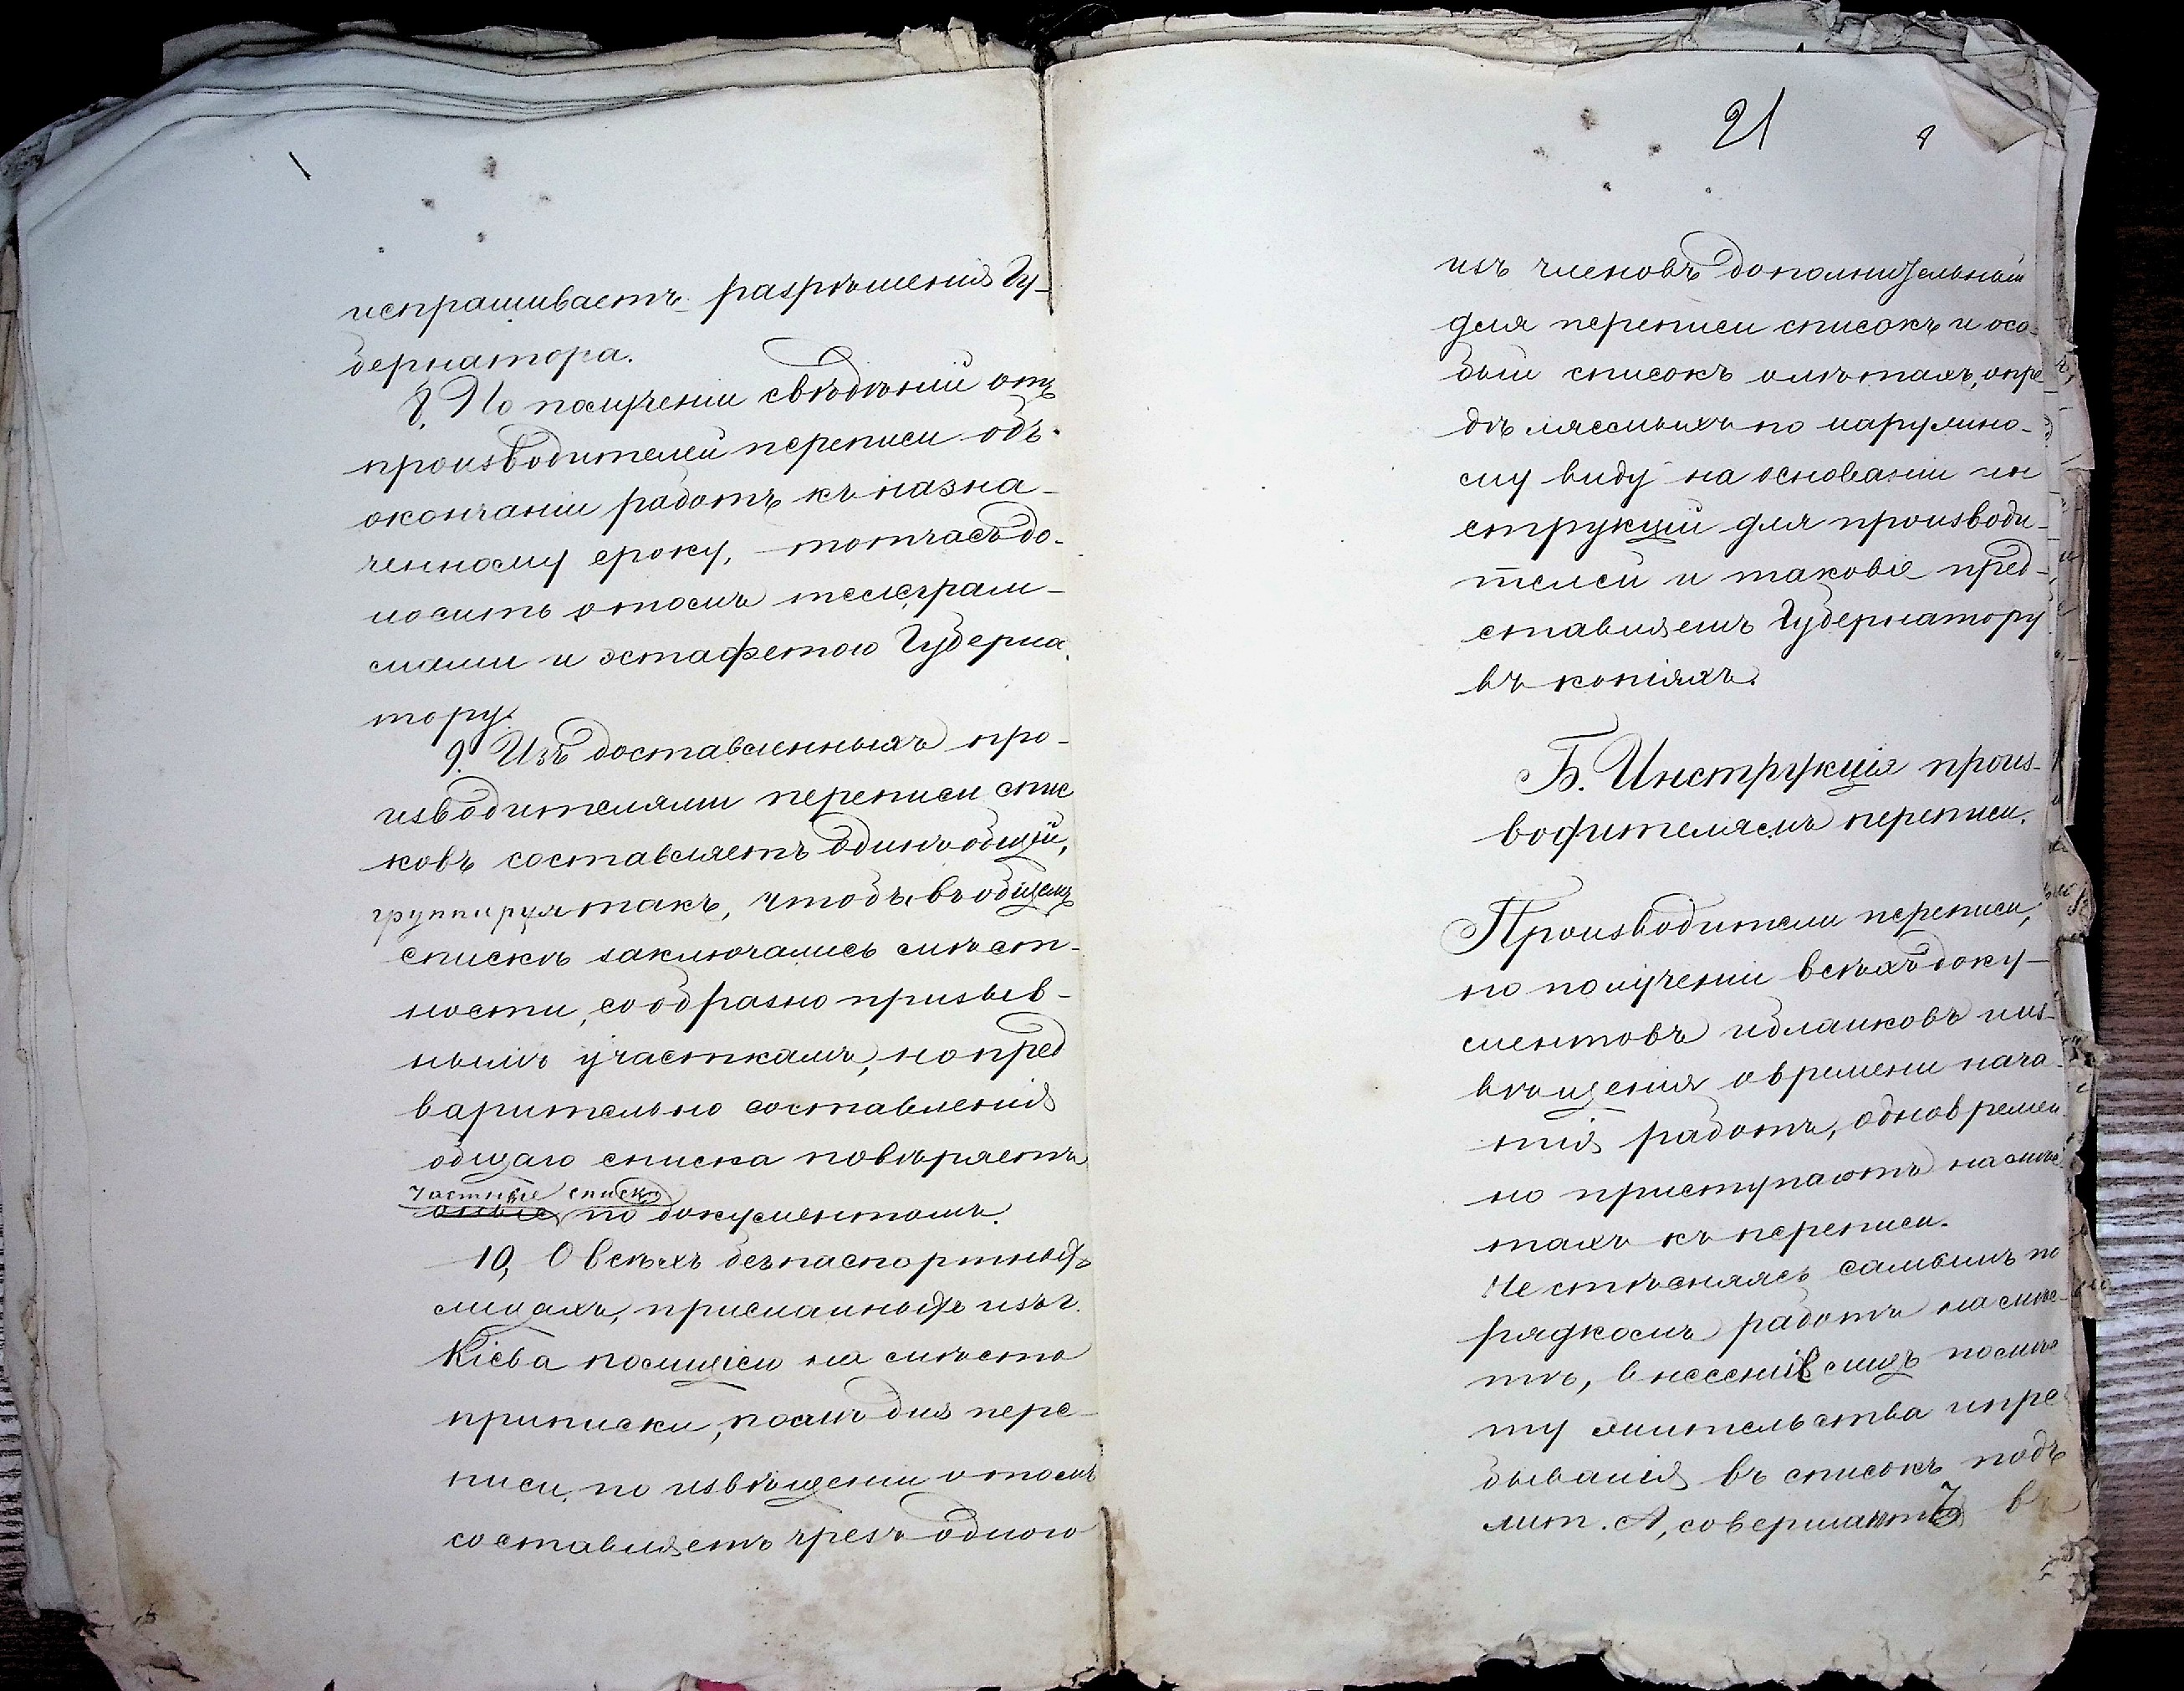 испрашиваетъ разрѣшенія Гу-
бернатора.
8. По полученіи свѣдѣній отъ
производителей переписи объ
окончаніи работъ къ назна-
ченному сроку, тотчасъ до-
носитъ о томъ телеграм-
мами и эстафетою Губерна
тору.
9. Изъ доставленныхъ про-
изводителями переписи спис
ковъ составляетъ одинъ общій,
группируя такъ, чтобъ въ общемъ
спискѣ заключались мѣст-
ности, сообразно призыв-
нымъ участкамъ, но пред
варительно составленія
общаго списка повѣряетъ
частные списки
оные по документомъ.
10, О всѣхъ безпаспортныхъ
лицахъ, присланныхъ изъ г.
Кіева полиціею на мѣсто
приписки, послѣ дня пере-
писи, по извѣщеніи о томъ
составляетъ чрезъ одного
21
8
изъ членовъ дополнительный
для переписи списокъ и осо-
бый списокъ о лѣтахъ, опре
дѣляемыхъ по наружно-
му виду на основаніи ин
струкціи для производи-
телей и таковые пред-
ставляетъ Губернатору
въ копіяхъ.
Б. Инструкція произ-
водителямъ переписи.
Производители переписи,
по полученіи всѣхъ доку-
ментовъ и бланковъ и из-
вѣщенія о времени нача-
тія работъ, одновремен
но приступаютъ на мѣс
тахъ къ переписи.
Не стѣсняясь самымъ по
рядкомъ работъ на мѣс-
тѣ, внесеніе лицъ по мѣс
ту жительства и пре
быванія въ списокъ подъ
лит. А, совершаютъ в